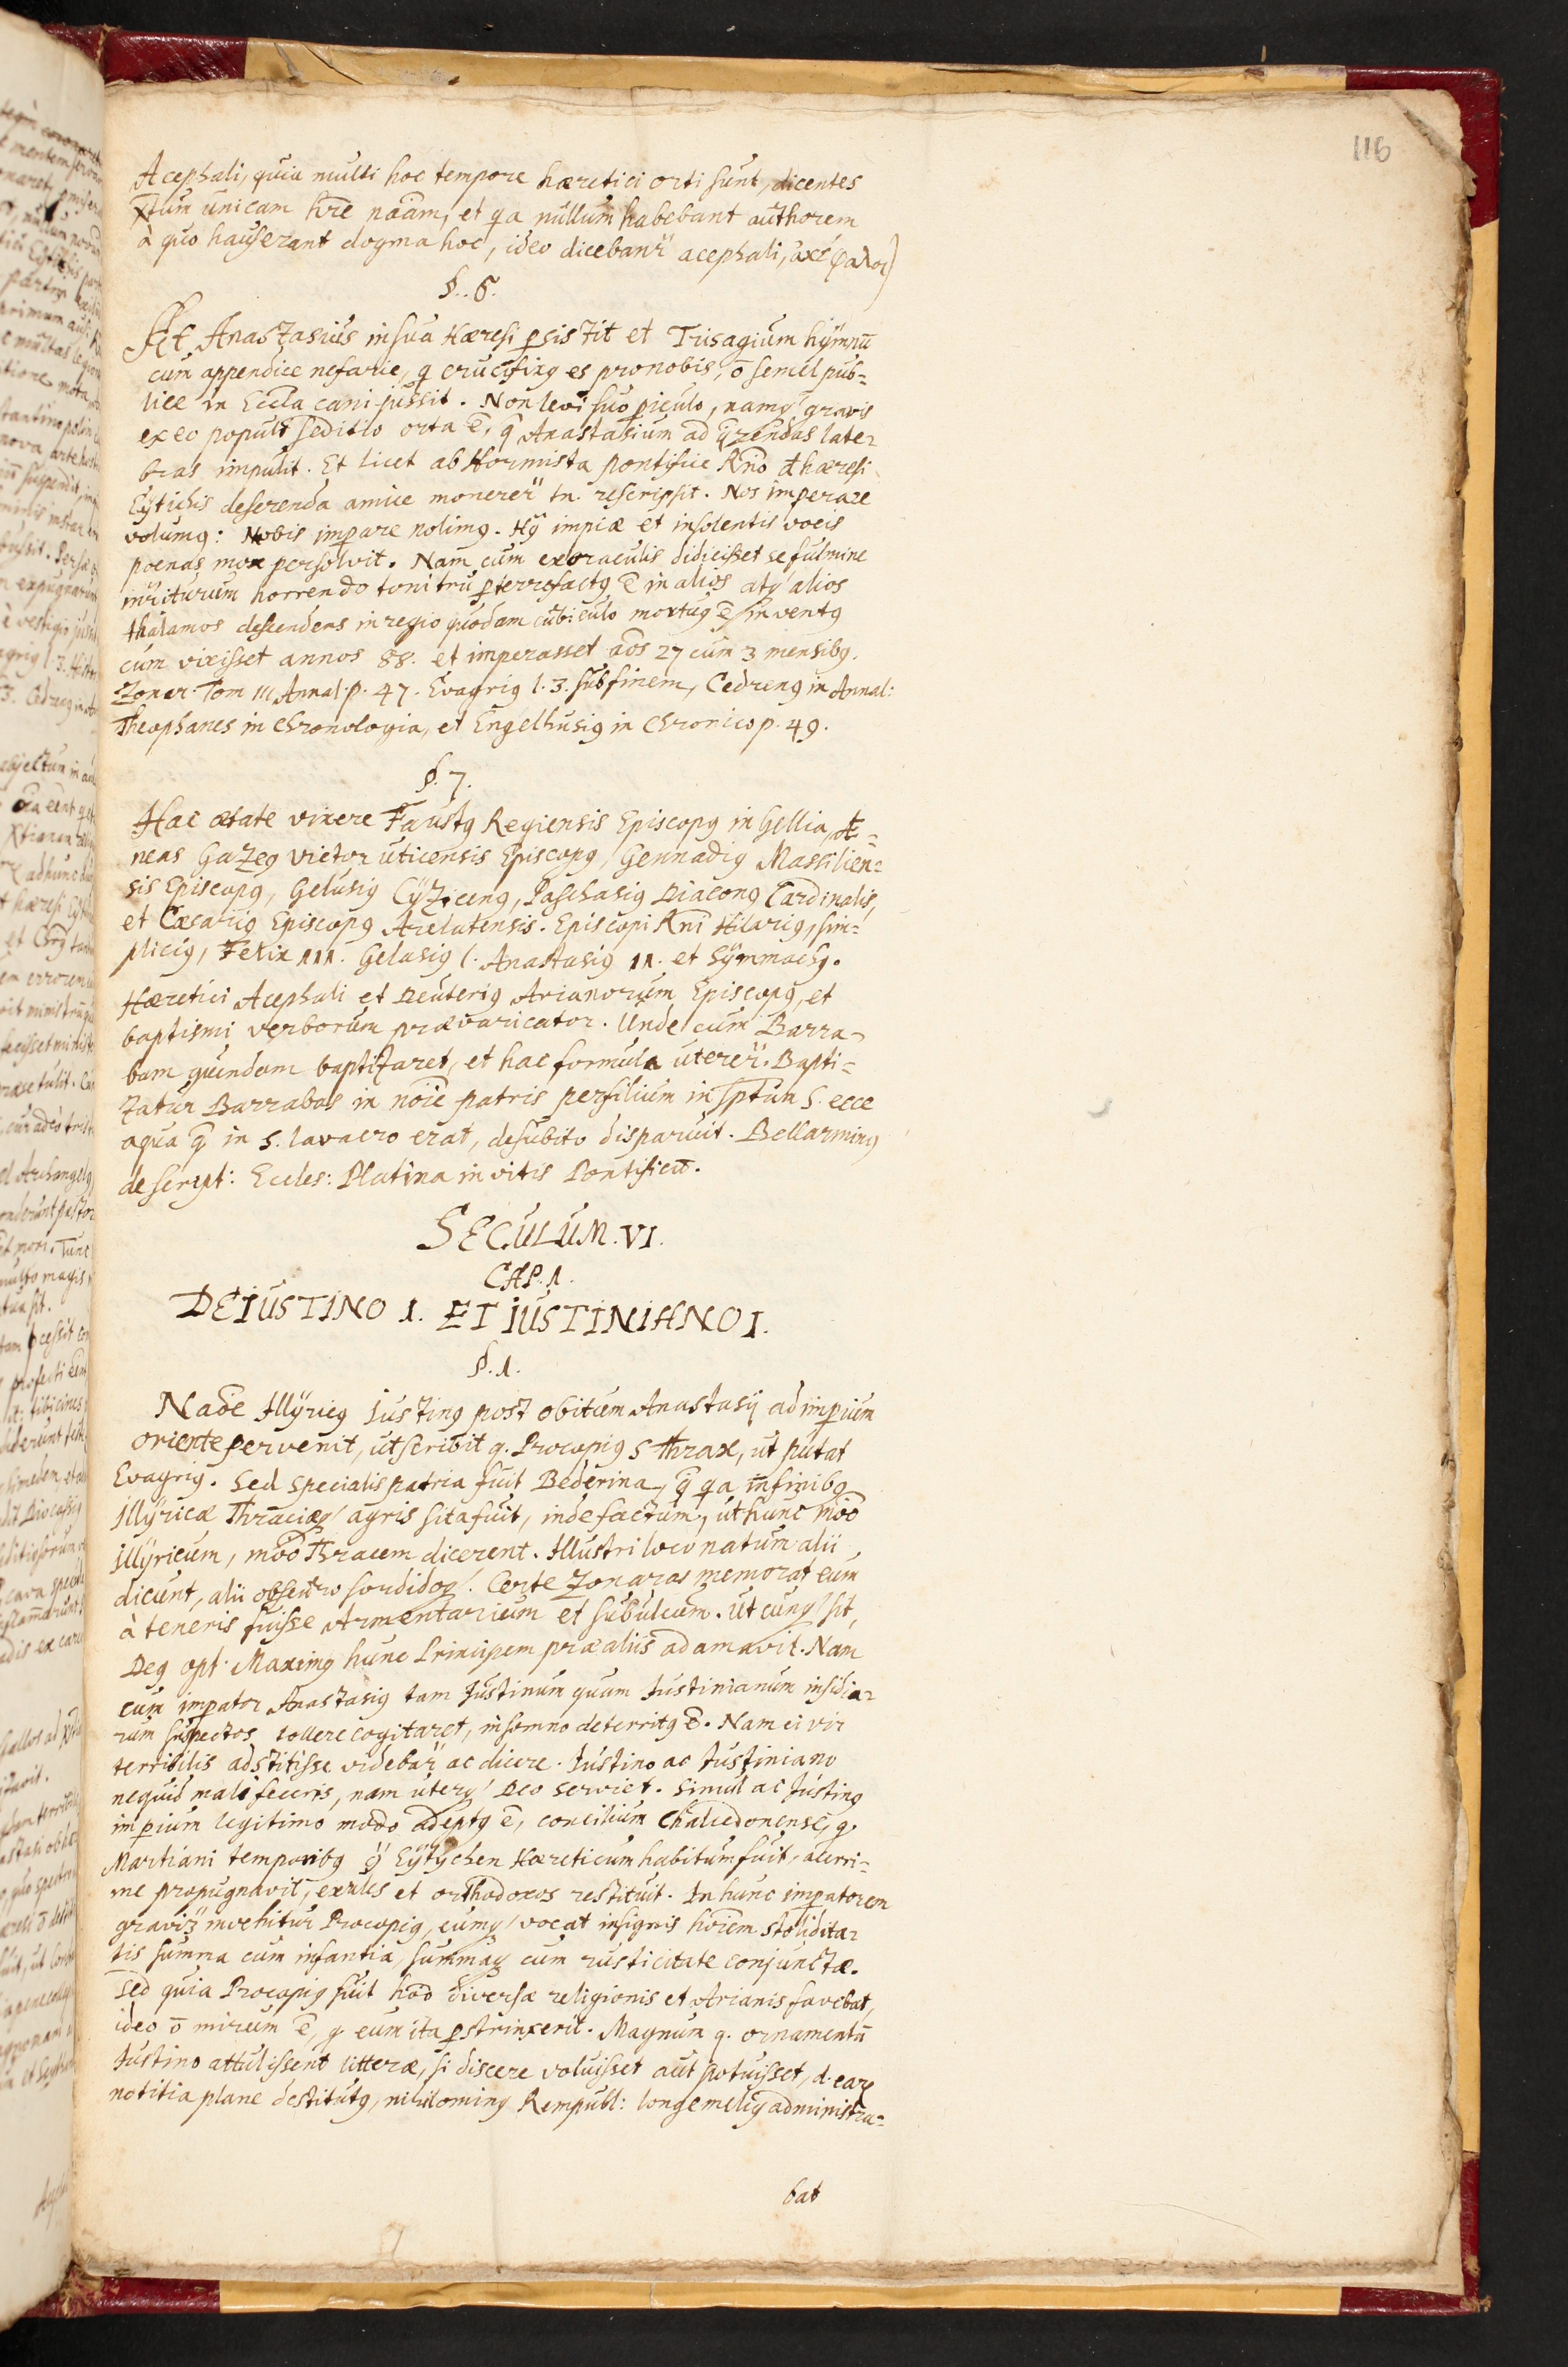 116
Acephali, quia multi hoc tempore hæretici orti sunt, dicentes
Xtum unicam hre nâam, et qa nullum habebant authorem
à quo hauserant dogma hoc, ideo dicebanr acephali, ακέφαλοι)
§. 6.
At Anastasius in sua Hæresi psistit et Trisagium hÿmnū
cum appendice nefarie, q crucifixq es pro nobis, ō semel pub=
lice in Eccla cani jussit. Non levi suo piculo, namq gravis
ex eo populi seditio orta ē, q Anastasium ad qrendas late=
bras impulit. Et licet ab Hormista pontifice Rno de hæresi
Eÿtichis deserenda amice monerer tn. rescripsit. Nos imperare
volumq: Nobis impare nolimq. Hq impiæ et insolentis vocis
poenas mox persolvit. Nam cum ex oraculis didicisset se fulmine
intriturum horrendo tonitru pterrefactq ē in alios atq alios
thalamos descendens in regio quodam cubiculo mortuq ē inventq
cum vixisset annos 88. et imperasset aōs 27 cum 3 mensibq.
Zonar. Tom III Annal. p. 47. Evagriq l. 3. sub finem, Cedrenq in Annal:
Theophanes in Chronologia, et Engelhusiq in Chronico p. 49.
§. 7.
Hac ætate vixere Faustq Regiensis Episcopq in Gellia, Æ=
neas Gazeq Victor uticensis Episcopq, Gennadiq Massilien=
sis Episcopq, Gelusiq Cÿzicenq, Paschasiq Diaconq Cardinalis,
et Cæsariq Episcopq Arelatensis. Episcopi Rni Hilariq, sim=
pliciq, Felix III. Gelasiq I. Anastasiq II. et Sÿmmachq.
Hæretici Acephali et Deuteriq Arianorum Episcopq, et
baptismi verborum prævaricator. Unde cum Barra=
bam quendam baptizaret, et hac formula uterer. Bapti=
zatur Barrabas in noie patris per filium in sptum S. ecce
aqua q in s. lavacro erat, desubito disparuit. Bellarminq
de script: Eccles: Platina in vitis Pontificū.
SECULUM. VI.
CAP. 1.
DE IUSTINO 1. ET IUSTINIANO I.
§. 1.
Naōe Illÿricq Iustinq post obitum Anastasij ad impium
oriente pervenit, ut scribit q. Procopiq s Thrax, ut putat
Evagriq. Sed specialis patria fuit Bederina, q qa in finibq
Illÿricæ Thraciæq agris sita fuit, inde factum, ut hunc mōo
Illÿricum, mōo Thracem dicerent. Illustri loco natum alii
dicunt, alii obscuro sordidoq. Certe Zonaras memorat eum
à teneris fuisse Armentarium et subulcum. Ut cunq sit,
Deq opt. Maximq hunc Principem præ aliis adamavit. Nam
cum impator Anastasiq tam Justinum quam Justinianum insidia=
rum suspectos tollere cogitaret, in somno deterritq ē. Nam ei vir
terribilis adstitisse videbar ac dicere. Justino ac Justiniano
nequid mali feceris, nam uterq Deo serviet. Simul ac Justinq
impium legitimo modo adeptq ē, concilium Chalcedonense, q
Martiani temporibq Eÿtÿchen Hæreticum habitum fuit, acerri=
me propugnavit, exules et orthodoxos restituit. In hunc impatorem
graviq invehitur Procopiq, eumq vocat insignis hoiem stoliditatis=
tis summa cum infantia, summaq cum rusticitate conjunctæ.
Sed quia Procopiq fuit hoo diversæ religionis et Arianis favebat,
ideo ō mirum ē, q eum ita pstrinxerit. Magnum q. ornamentū
Justino attulissent litteræ, si discere voluisset aut potuisset, d. eaq
notitia plane destitutq, nihilominq Rempubl: longe meliq administra=
bat